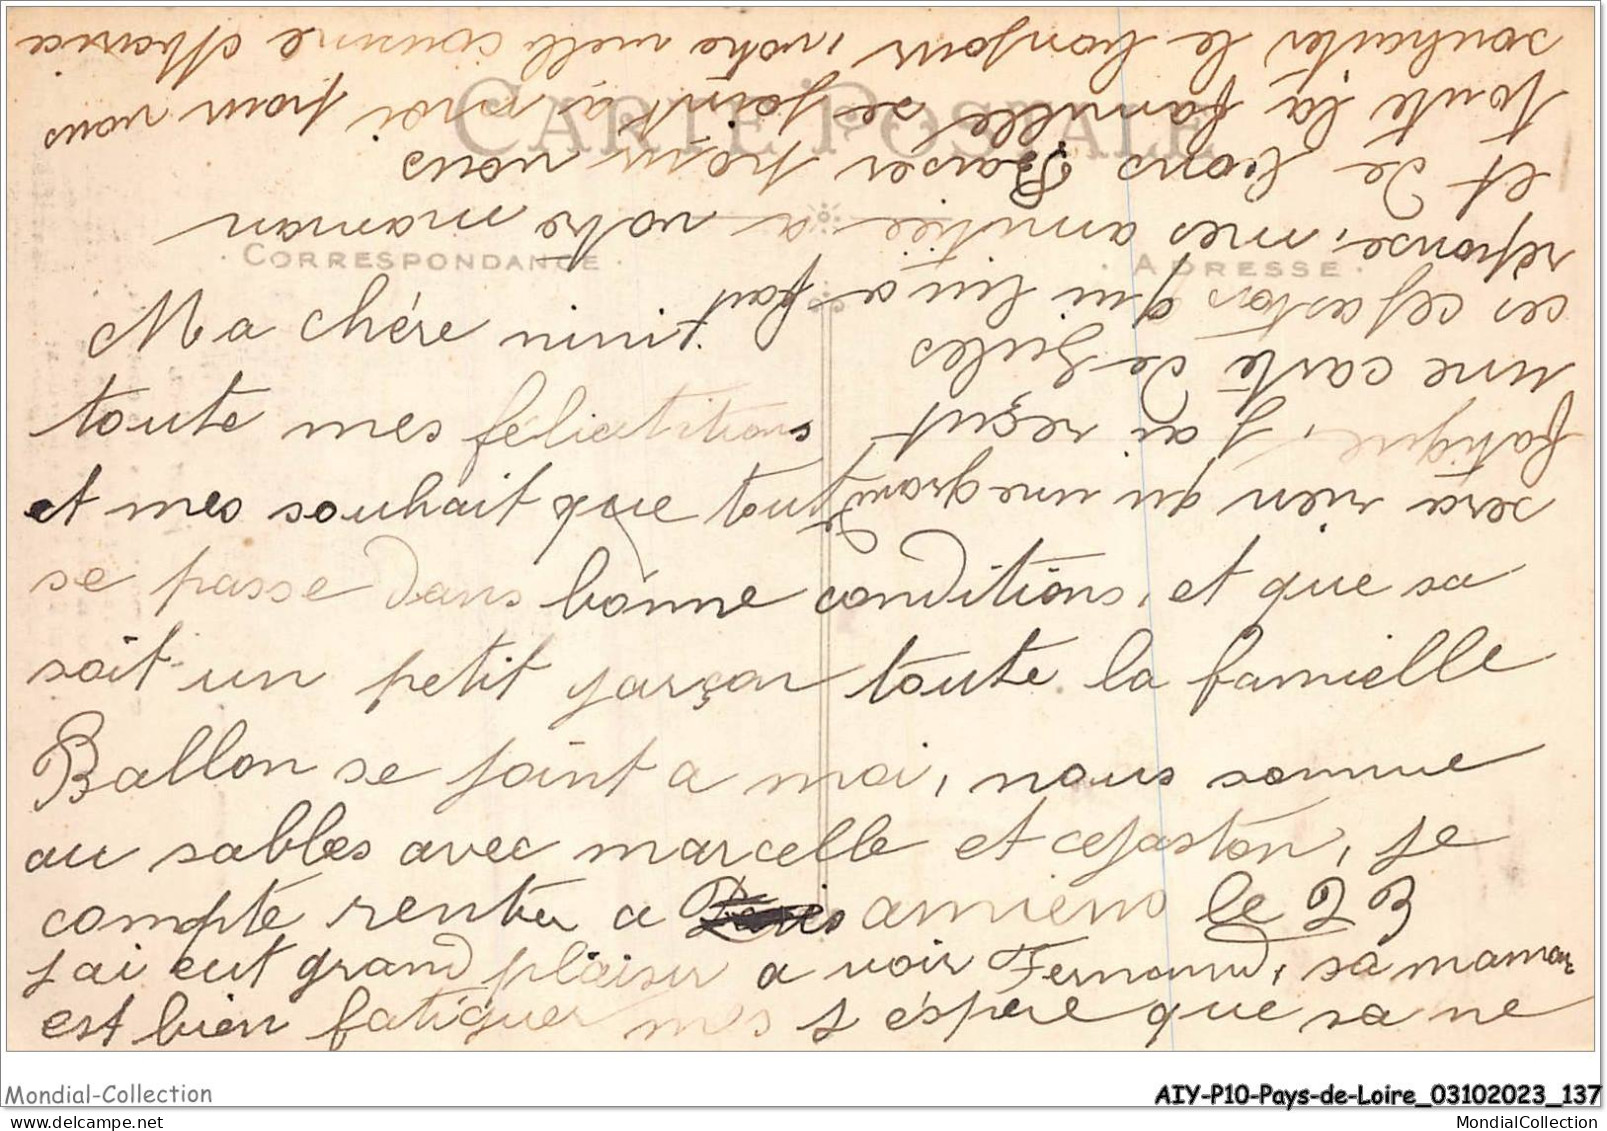 CARTE POSTALE
CORRESPONDANCE
ADRESSE
Ma chére ninit
toute mes félicititions
et mes souhait que tout
se passe dans bonne conditions, et que sa
soit un petit garçon toute la famielle
Ballon se joint a moi, nous somme
au sables avec marcelle et cegaston, je
compte rentrer a amiens le 23
j ai eut grand plaisir a voir Fernand, sa maman
est bien fatiguer mes j éspére que sa ne
sera rien qu une grand
fatigue, j ai reçut
une carte de Gules
ces cegaston qui lui a fait
réponse, mes amitiée a votre maman
et de bons Baiser pour vous
toute la famille se joint a moi pour vous
souhaiter le bonjour, votre vielle cousine Maria
Mondial-Collection
AIY-P10-Pays-de-Loire_03102023_137
mondialcollection.net
MondialCollection.com